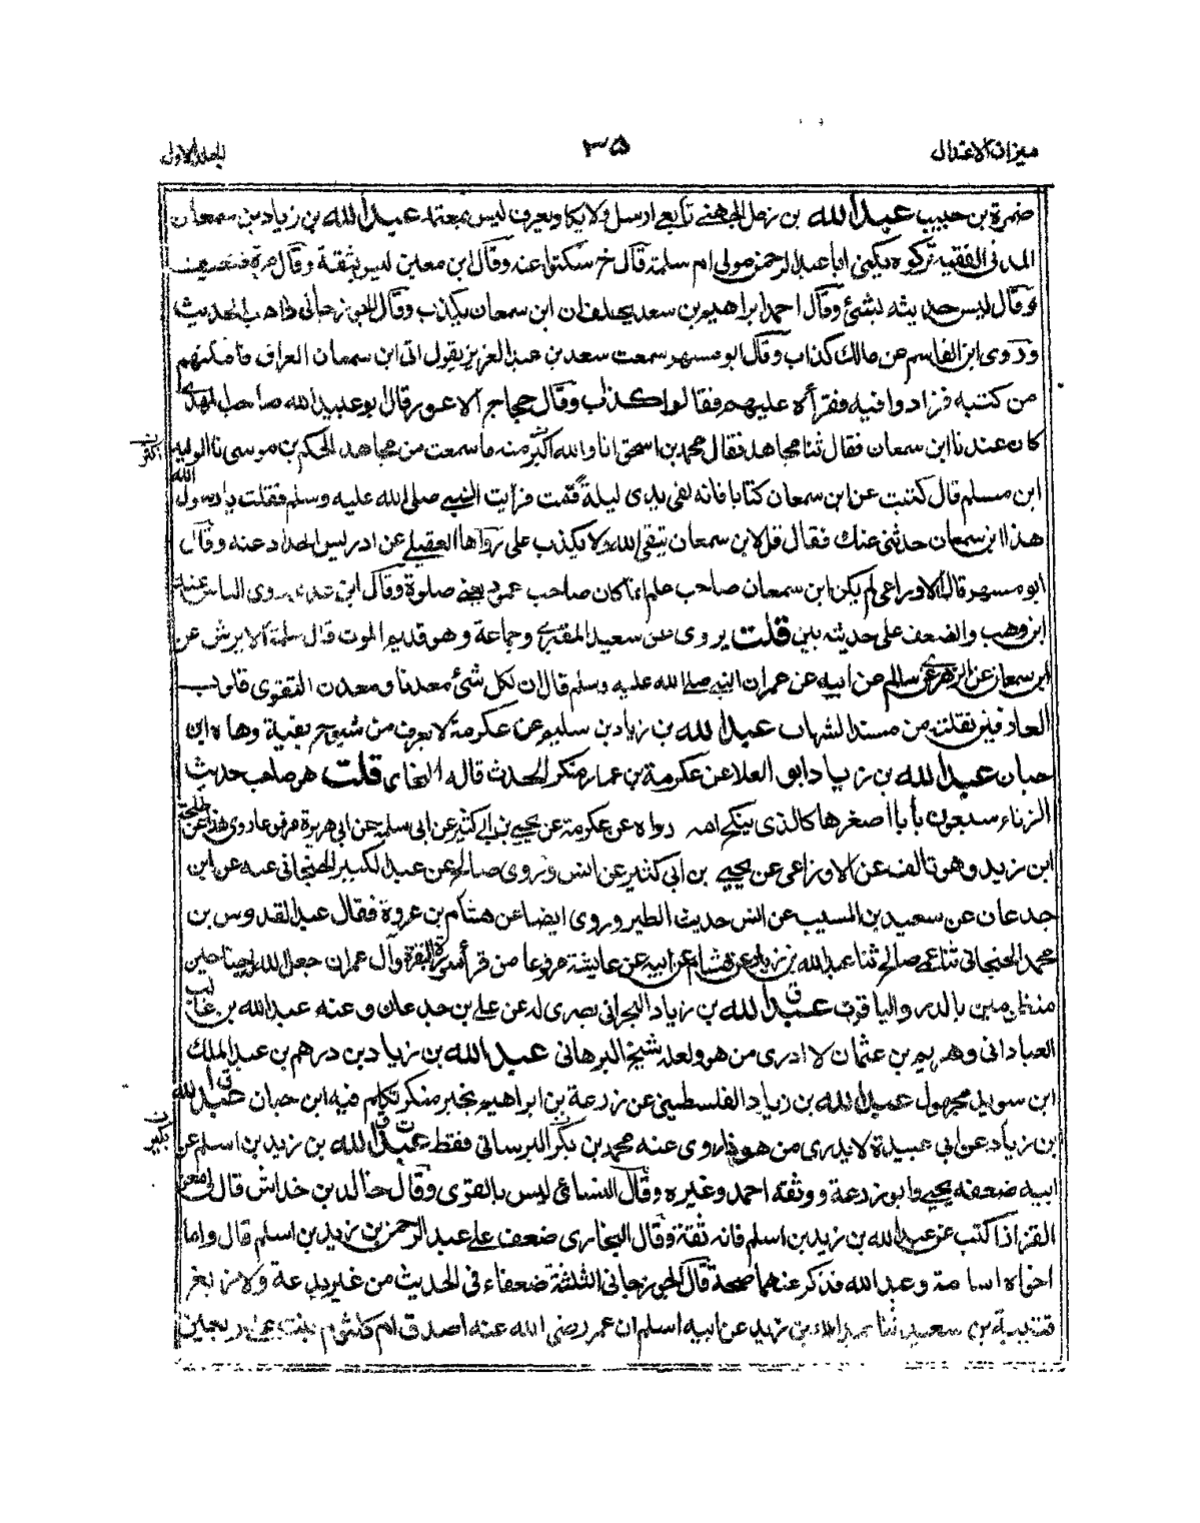 ميزان الاعتدال
٣٥
المجلد الاول
ضمرة بن حبيب عبد الله بن زمل الجهنى تابعى ارسل ولا يكاد يعرف ليس بمعتمد عبد الله بن زياد بن سمعان
المدنى الفقيه تركوه يكنى ابا عبد الرحمن مولى ام سلمة قال خ سكتوا عنه وقال ابن معين ليس بثقة وقال مرة ضعيف
وقال ليس حديثه بشئ وقال احمد ابراهيم بن سعد يحلف ان ابن سمعان يكذب وقال الجوزجانى ذاهب الحديث
وروى ابن القاسم عن مالك كذاب وقال ابو مسهر سمعت سعد بن عبد العزيز يقول اتى ابن سمعان العراق فامكنهم
من كتبه فزادوا فيه وفقرأه عليهم فقالوا كذاب وقال حجاج الاعور قال ابو عبيد الله صاحب المهدى
كان عندنا ابن سمعان فقال ثنا مجاهد فقال محمد بن اسحق انا والله اكبر منه ما سمعت من مجاهد الحكم بن موسى نا الوليد
اكثر
ابن مسلم قال كتبت عن ابن سمعان كتابا فانه لفى يدى ليلة قمت فرايت النبى صلى الله عليه وسلم فقلت يا رسول الله
هذا ابن سمعان حدثنى عنك فقال قل لابن سمعان يتقى الله ولا يكذب على رواها العقيلى عن ادريس الحداد عنه وقال
ابو مسهر قال الاوزاعى لم يكن ابن سمعان صاحب علم انما كان صاحب عمود يعنى صلوة وقال ابن عدى روى الناس عنه
ابن وهب والضعف على حديثه بين قلت يروى عن سعيد المقبرى وجماعة وهو قديم الموت قال سلمة الابرش عن
ابن سمعان عن الزهرى عن سالم عن ابيه عن عمران النبى صلى الله عليه وسلم قال ان لكل شئ معدنا ومعدن التقوى قلوب
العارفين نقلته من مسند الشهاب عبد الله بن زياد بن سليم عن عكرمة لا يعرف من شيوخ بقية وهاه ابن
حبان عبد الله بن زياد ابو العلا عن عكرمة بن عمار منكر الحدث قاله البخارى قلت هو صاحب حديث
الزناء سبعون بابا اصغرها كالذى ينكح امه رواه عن عكرمة عن يحيى بن ابى كثير عن ابى سلمة عن ابى هريرة مرفوعا روى هذا عن طلحة
ابن زيد وهو تالف عن الاوزاعى عن يحيى بن ابى كثير عن انس وروى صالح عن عبد الكبير الحبحابى عمه عن ابن
جدعان عن سعيد بن المسيب عن انس حديث الطير وروى ايضا عن هشام بن عروة فقال عبد القدوس بن
محمد الحبحابى ثنا عمى صالح ثنا عبد الله بن زياد عن هشام عن ابيه عن عايشة مرفوعا من قرأ سورة البقرة وآل عمران جعل الله له جناحين
منظومين بالدر والياقوت عبد الله بن زياد البحرانى بصرى له عن على بن جدعان وعنه عبد الله بن غالب
ق
العبادانى وهريم بن عثمان لا ادرى من هو ولعله شيخ البرهانى عبد الله بن زياد بن درهم بن عبد الملك
ابن سويد مجهول عبد الله بن زياد الفلسطينى عن زرعة بن ابراهيم بخبر منكر تكلم فيه ابن حبان عبد الله
بن زياد عن ابى عبيدة لا يدرى من هو ذا روى عنه محمد بن بكر البرسانى فقط عبد الله بن زيد بن اسلم عن
بكير
ابيه ضعفه يحيى وابو زرعة ووثقه احمد وغيره وقال النساءى ليس بالقوى وقال خالد بن خداش قال لى معن
القزاز اكتب عن عبد الله بن زيد بن اسلم فانه ثقة وقال البخارى ضعف على عبد الرحمن بن زيد بن اسلم قال واما
اخواه اسامة وعبد الله فذكر عنهما صحة قال الجوزجانى الثلثة ضعفاء فى الحديث من غير بدعة ولا زيغ
قتيبة بن سعيد ثنا عبد الله بن زيد عن ابيه اسلم ان عمر رضى الله عنه اصدق ام كلثوم بنت على اربعين